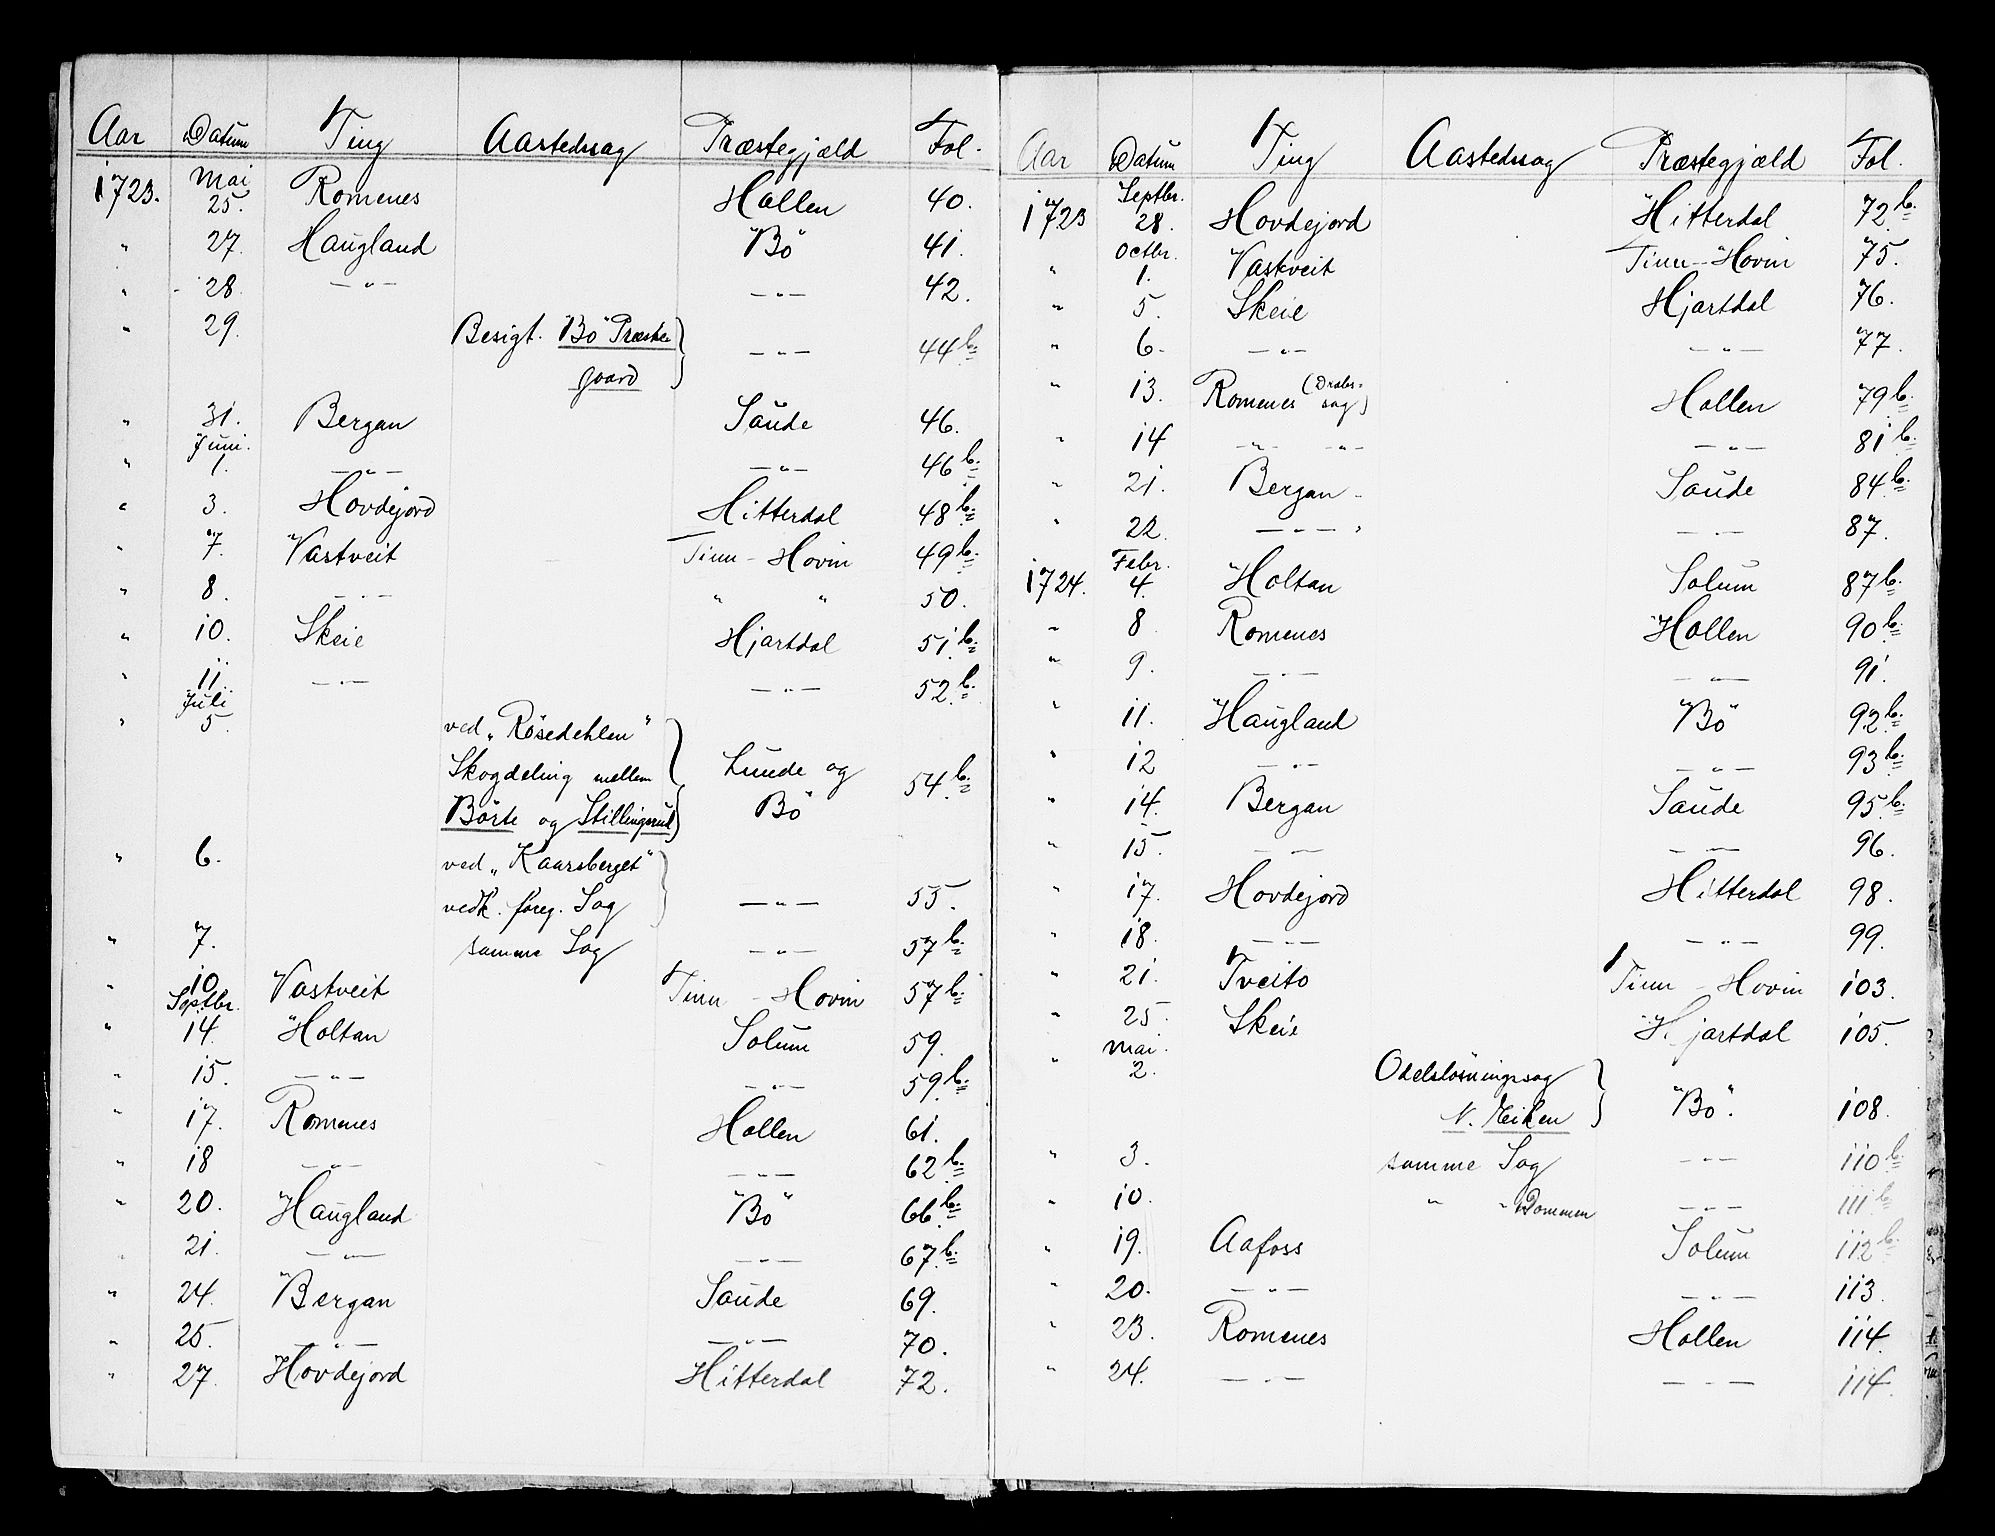 Aar Datum Ting Aastedssag Præstegjæld Fol.
1723. Mai 25. Romenes Hollen 40.
" 27. Haugland "Bö" 41.
" 28. —"— —"— 42.
" 29. Besigt. "Bö" Præste- —"— 44 b.
gaard
" 31. Bergan Saude 46.
" Juni. 1. —"— —"— 46 b.
" 3. Hovdejord Hitterdal 48 b.
" 7. Vastveit Tinn - Hovin 49 b.
" 8. —"— " " 50.
" 10. Skeie Hjartdal 51 b.
" 11. —"— —"— 52 b.
" Juli 5. ved „Rösedehlen"
Skogdeling mellem Lunde og 54 b.
Börte og Stillingsrud Bö
" 6. ved „Kaarsberget"
vedk. foreg. Sag —"— 55.
" 7. samme Sag —"— 57 b.
" 10 Vastveit Tinn - Hovin 57 b.
" Septbr. 14. Holtan Solum 59.
" 15. —"— —"— 59 b.
" 17. Romenes Hollen 61.
" 18 —"— —"— 62 b.
" 20. Haugland "Bö" 66 b.
" 21. —"— —"— 67 b.
" 24. Bergan Saude 69.
" 25. —"— —"— 70.
" 27. Hovdejord Hitterdal 72.
Aar Datum Ting Aastedssag Præstegjæld Fol.
1723 Septbr. 28. Hovdejord Hitterdal 72 b.
" Octbr. 1. Vastveit Tinn - Hovin 75.
" 5. Skeie Hjartdal 76.
" 6. —"— —"— 77.
" 13. Romenes (Drabs-sag) Hollen 79 b.
" 14 —"— —"— —"— 81 b.
" 21. Bergan Saude 84 b.
" 22. —"— —"— 87.
1724. Febr. 4. Holtan Solum 87 b.
" 8 Romenes Hollen 90 b.
" 9. —"— —"— 91.
" 11. Haugland "Bö" 92 b.
" 12 —"— —"— 93 b.
" 14. Bergan Saude 95 b.
" 15. —"— —"— 96.
" 17. Hovdejord Hitterdal 98.
" 18. —"— —"— 99.
" 21. Tveito Tinn - Hovin 103.
" 25. Skeie Hjartdal 105.
" Mai. 2. Odelslösningssag
N. Eiken "Bö". 108.
" 3. samme Sag —"— 110 b.
" 10. " " Dommen —"— 111 b.
" 19. Aafoss Solum 112 b.
" 20. —"— —"— 113.
" 23. Romenes Hollen 114.
" 24. —"— —"— 114.